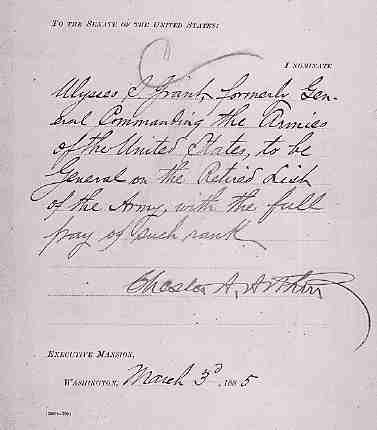 TO THE SENATE OF THE UNITED STATES:
I NOMINATE
Ulysses S. Grant, formerly Gen-
eral Commanding the Armies
of the United States, to be
General on the Retired List
of the Army, with the full
pay of such rank.
Chester A. Arthur
EXECUTIVE MANSION,
WASHINGTON, March 3d 1885